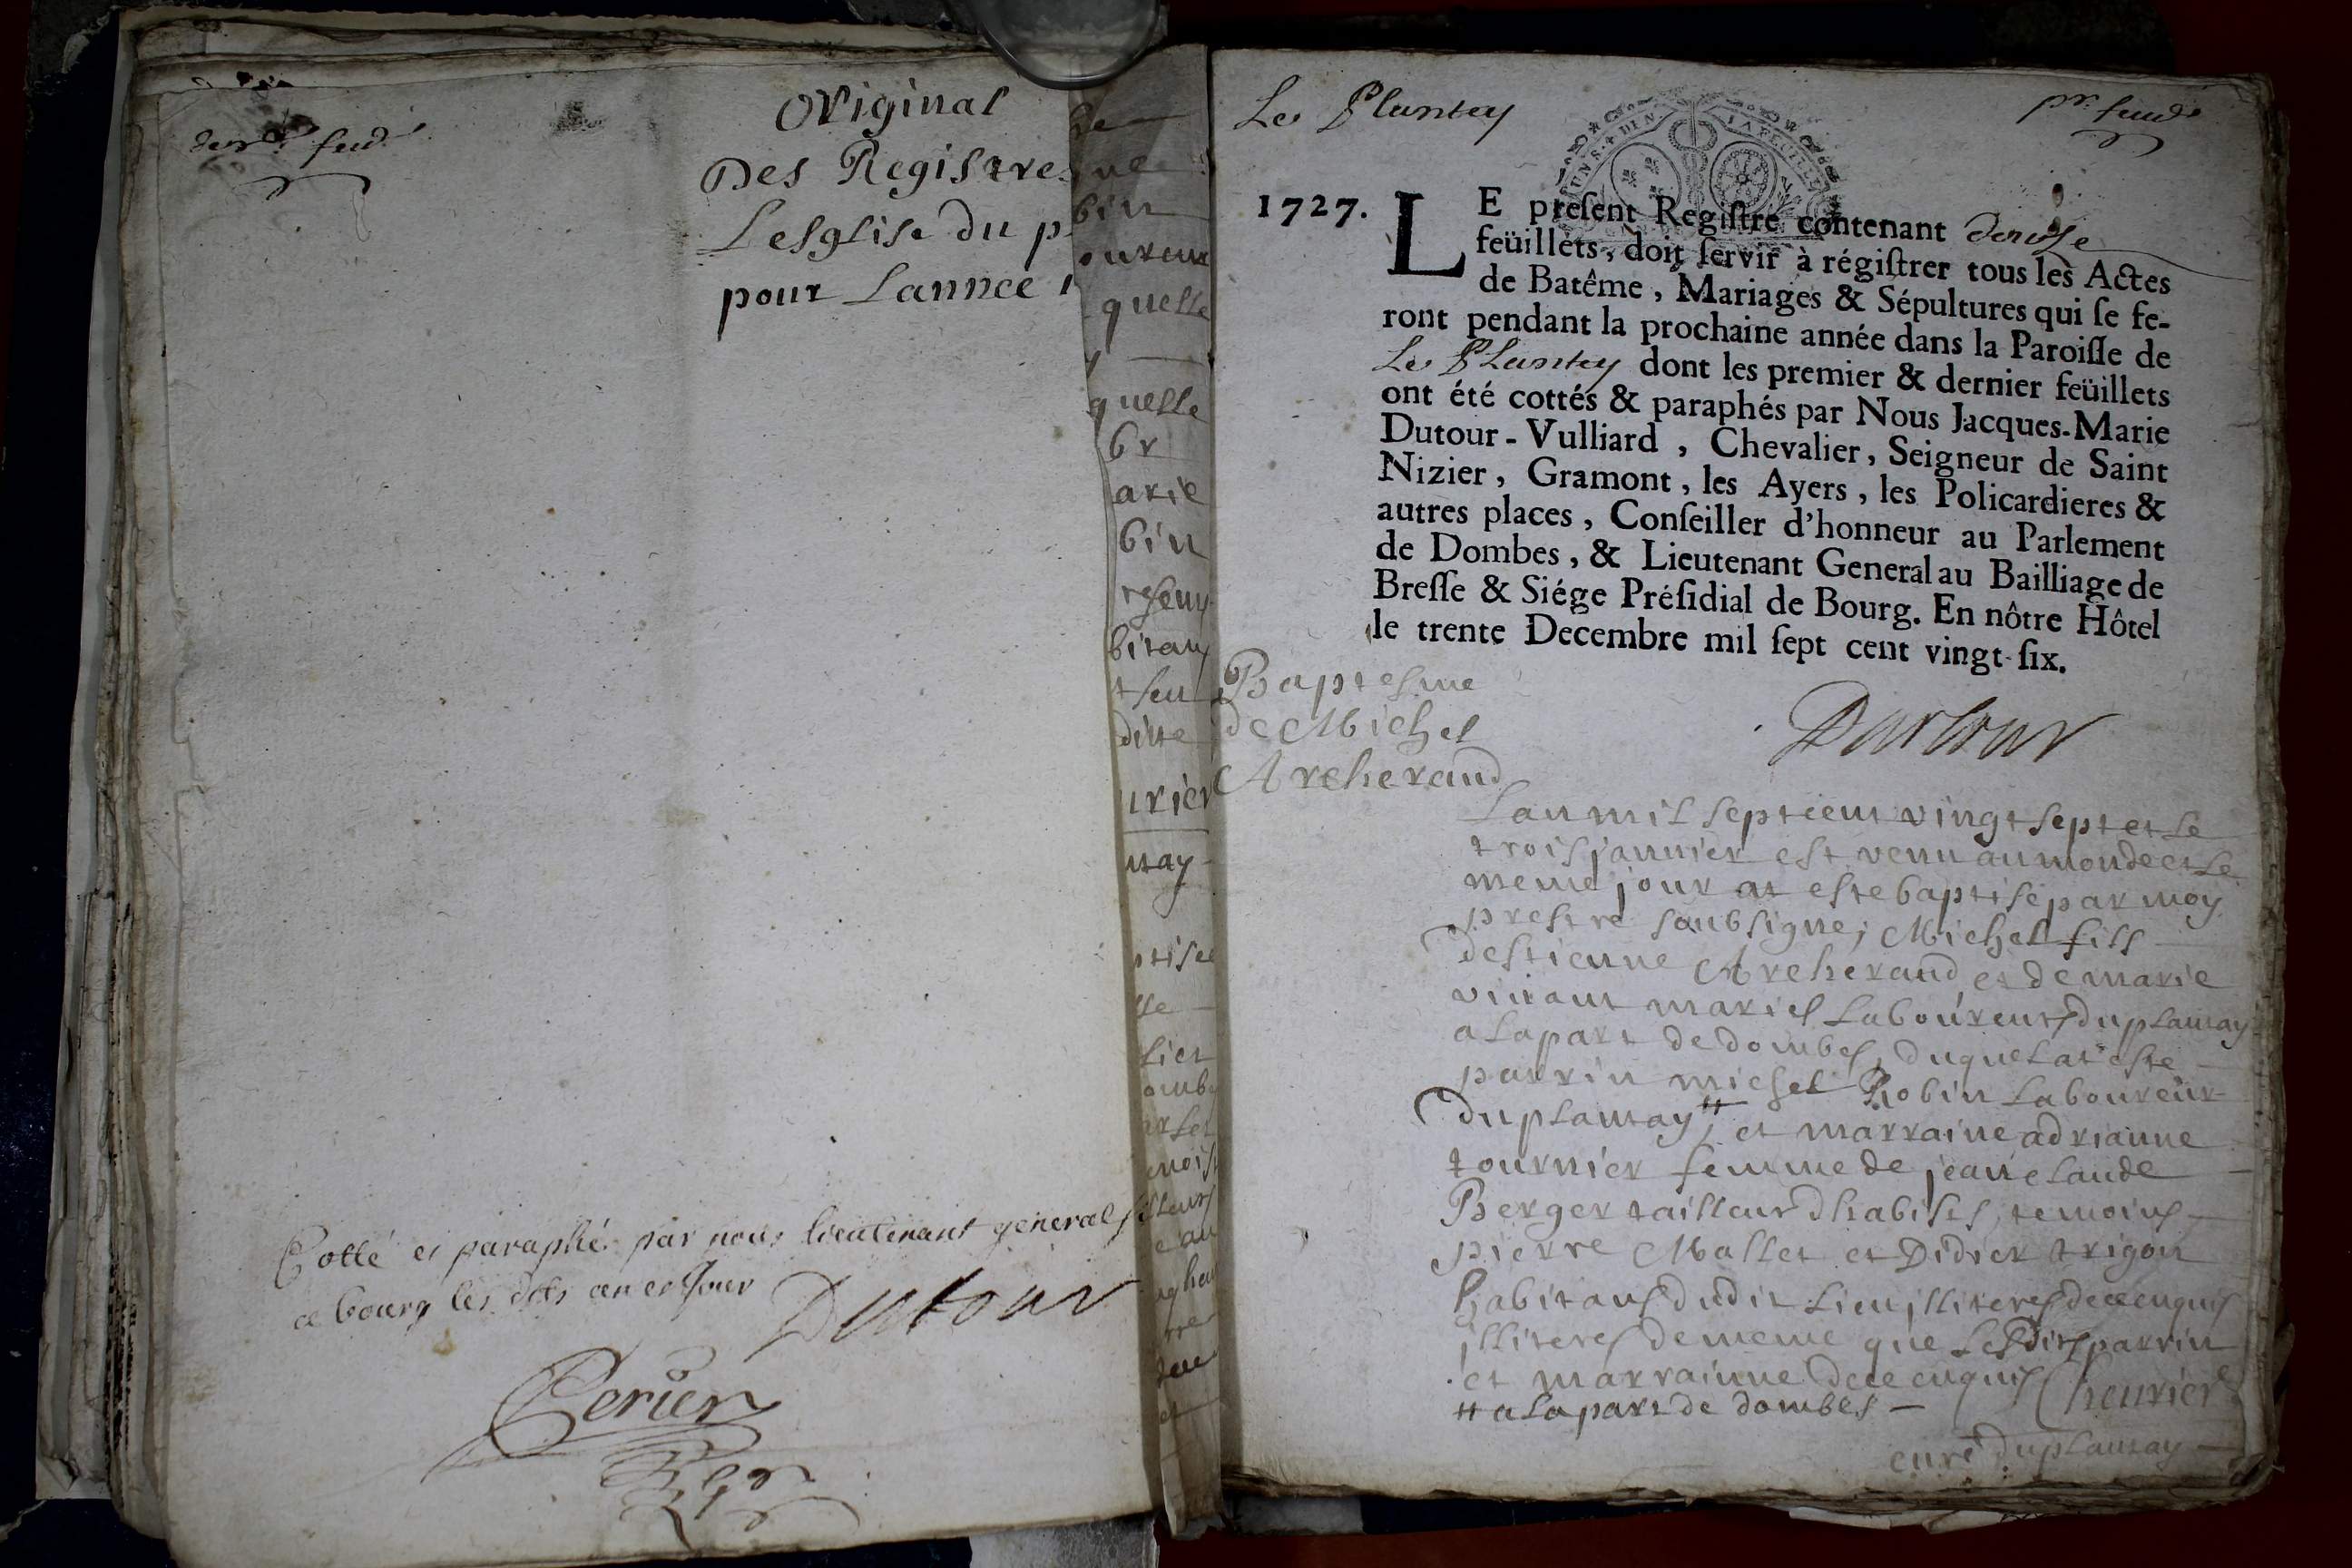 Original
Des Registre
Lesglise du p
pour Lannee 1
Cotté et paraphé par nous lieutenant general
a bourg les dits an et jour Dutour
Perier
quelle
quelle
br
arie
bin
bitans
ditte
urier
tay
ptisee
Le Plantey
UN S. 4 DEN. LA FEUILLE
1727. LE preſent Regiſtre contenant douse
feüillets, doit ſervir à régiſtrer tous les Actes
de Batême, Mariages & Sépultures qui ſe fe-
ront pendant la prochaine année dans la Paroiſſe de
Le Plantey dont les premier & dernier feüillets
ont été cottés & paraphés par Nous Jacques-Marie
Dutour-Vulliard, Chevalier, Seigneur de Saint
Nizier, Gramont, les Ayers, les Policardieres &
autres places, Conſeiller d'honneur au Parlement
de Dombes, & Lieutenant General au Bailliage de
Breſſe & Siége Préſidial de Bourg. En nôtre Hôtel
le trente Decembre mil ſept cent vingt-ſix.
Dutour
Baptesme
de Michel
Archeraud
Lan mil sept cent vingt sept et le
trois janvier est venu au monde et le
meme jour at este baptisé par moy
prestre soubsigne; Michel fils
destienne Archeraud et de marie
vinant mariés Laboureurs du plantay
a la part de dombes, duquel at este
parrin michel Robin Laboureur
du plantay # et marraine adrianne
tournier femme de jean claude
Berger tailleur dhabists, temoins
pierre Mallet et Didier trigon
habitans dudit Lieu illiteres de ce enquis
illiteres de meme que Lesdits parrin
et marrainne de ce enquis Cheurier
# a la part de dombes - curé du plantay